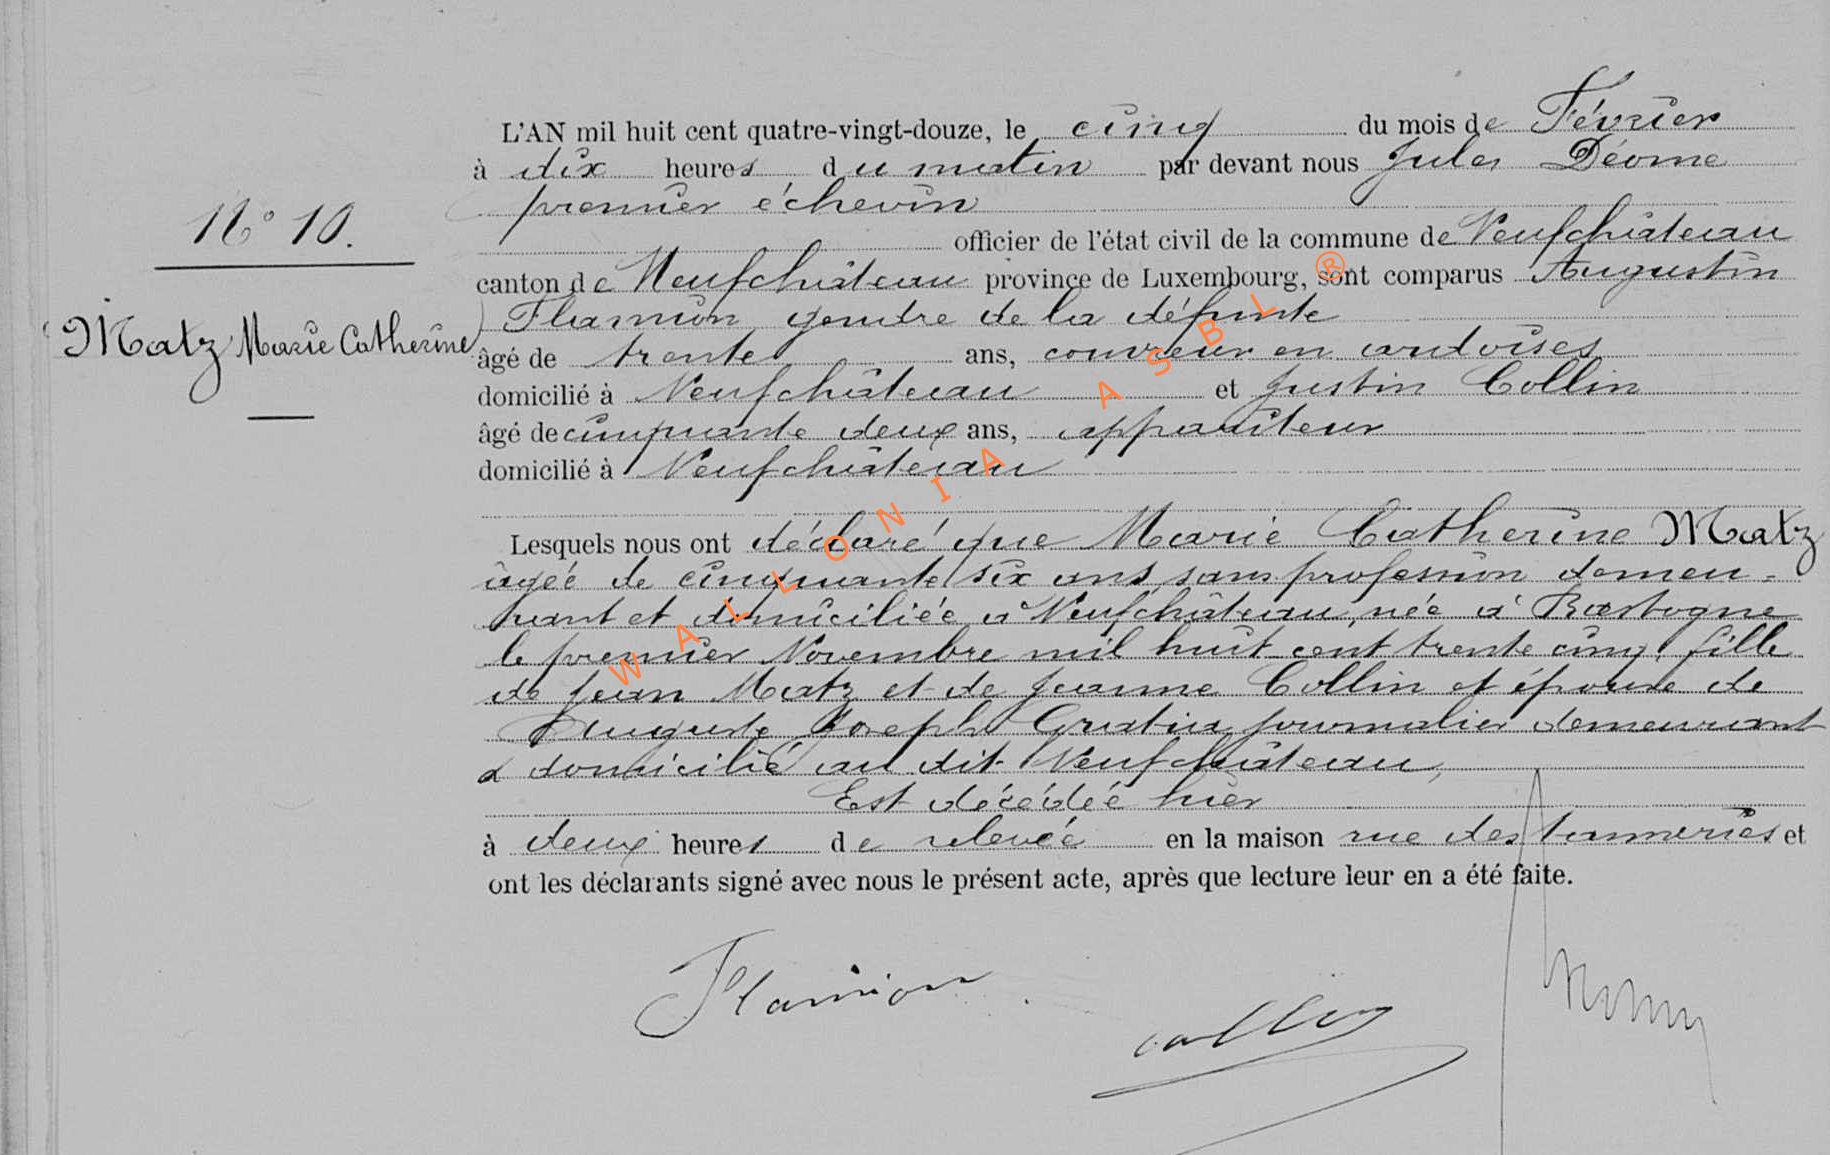 L'AN mil huit cent quatre-vingt-douze, le cinq du mois de Février
à dix heures du matin par devant nous Jules Déome
premier échevin
N° 10.
officier de l'état civil de la commune de Neufchâteau
canton de Neufchâteau province de Luxembourg, sont comparus Augustin
Flamion gendre de la défunte
Matz Marie Catherine
âgé de trente ans, couvreur en ardoises
domicilié à Neufchâteau et Justin Collin
âgé de cinquante deux ans, appariteur
domicilié à Neufchâteau
Lesquels nous ont déclaré que Marie Catherine Matz
agée de cinquante six ans, sans profession demeu-
rant et domiciliée à Neufchâteau, née à Bastogne
le premier Novembre mil huit cent trente cinq, fille
de Jean Matz et de Jeanne Collin et épouse de
Auguste Joseph Gratia journalier demeurant
& domicilié au dit Neufchâteau,
Est décédée hier
à deux heures de relevée en la maison rue des tanneries et
ont les déclarants signé avec nous le présent acte, après que lecture leur en a été faite.
Flamion
Collin
WALLONIA ASBL ®